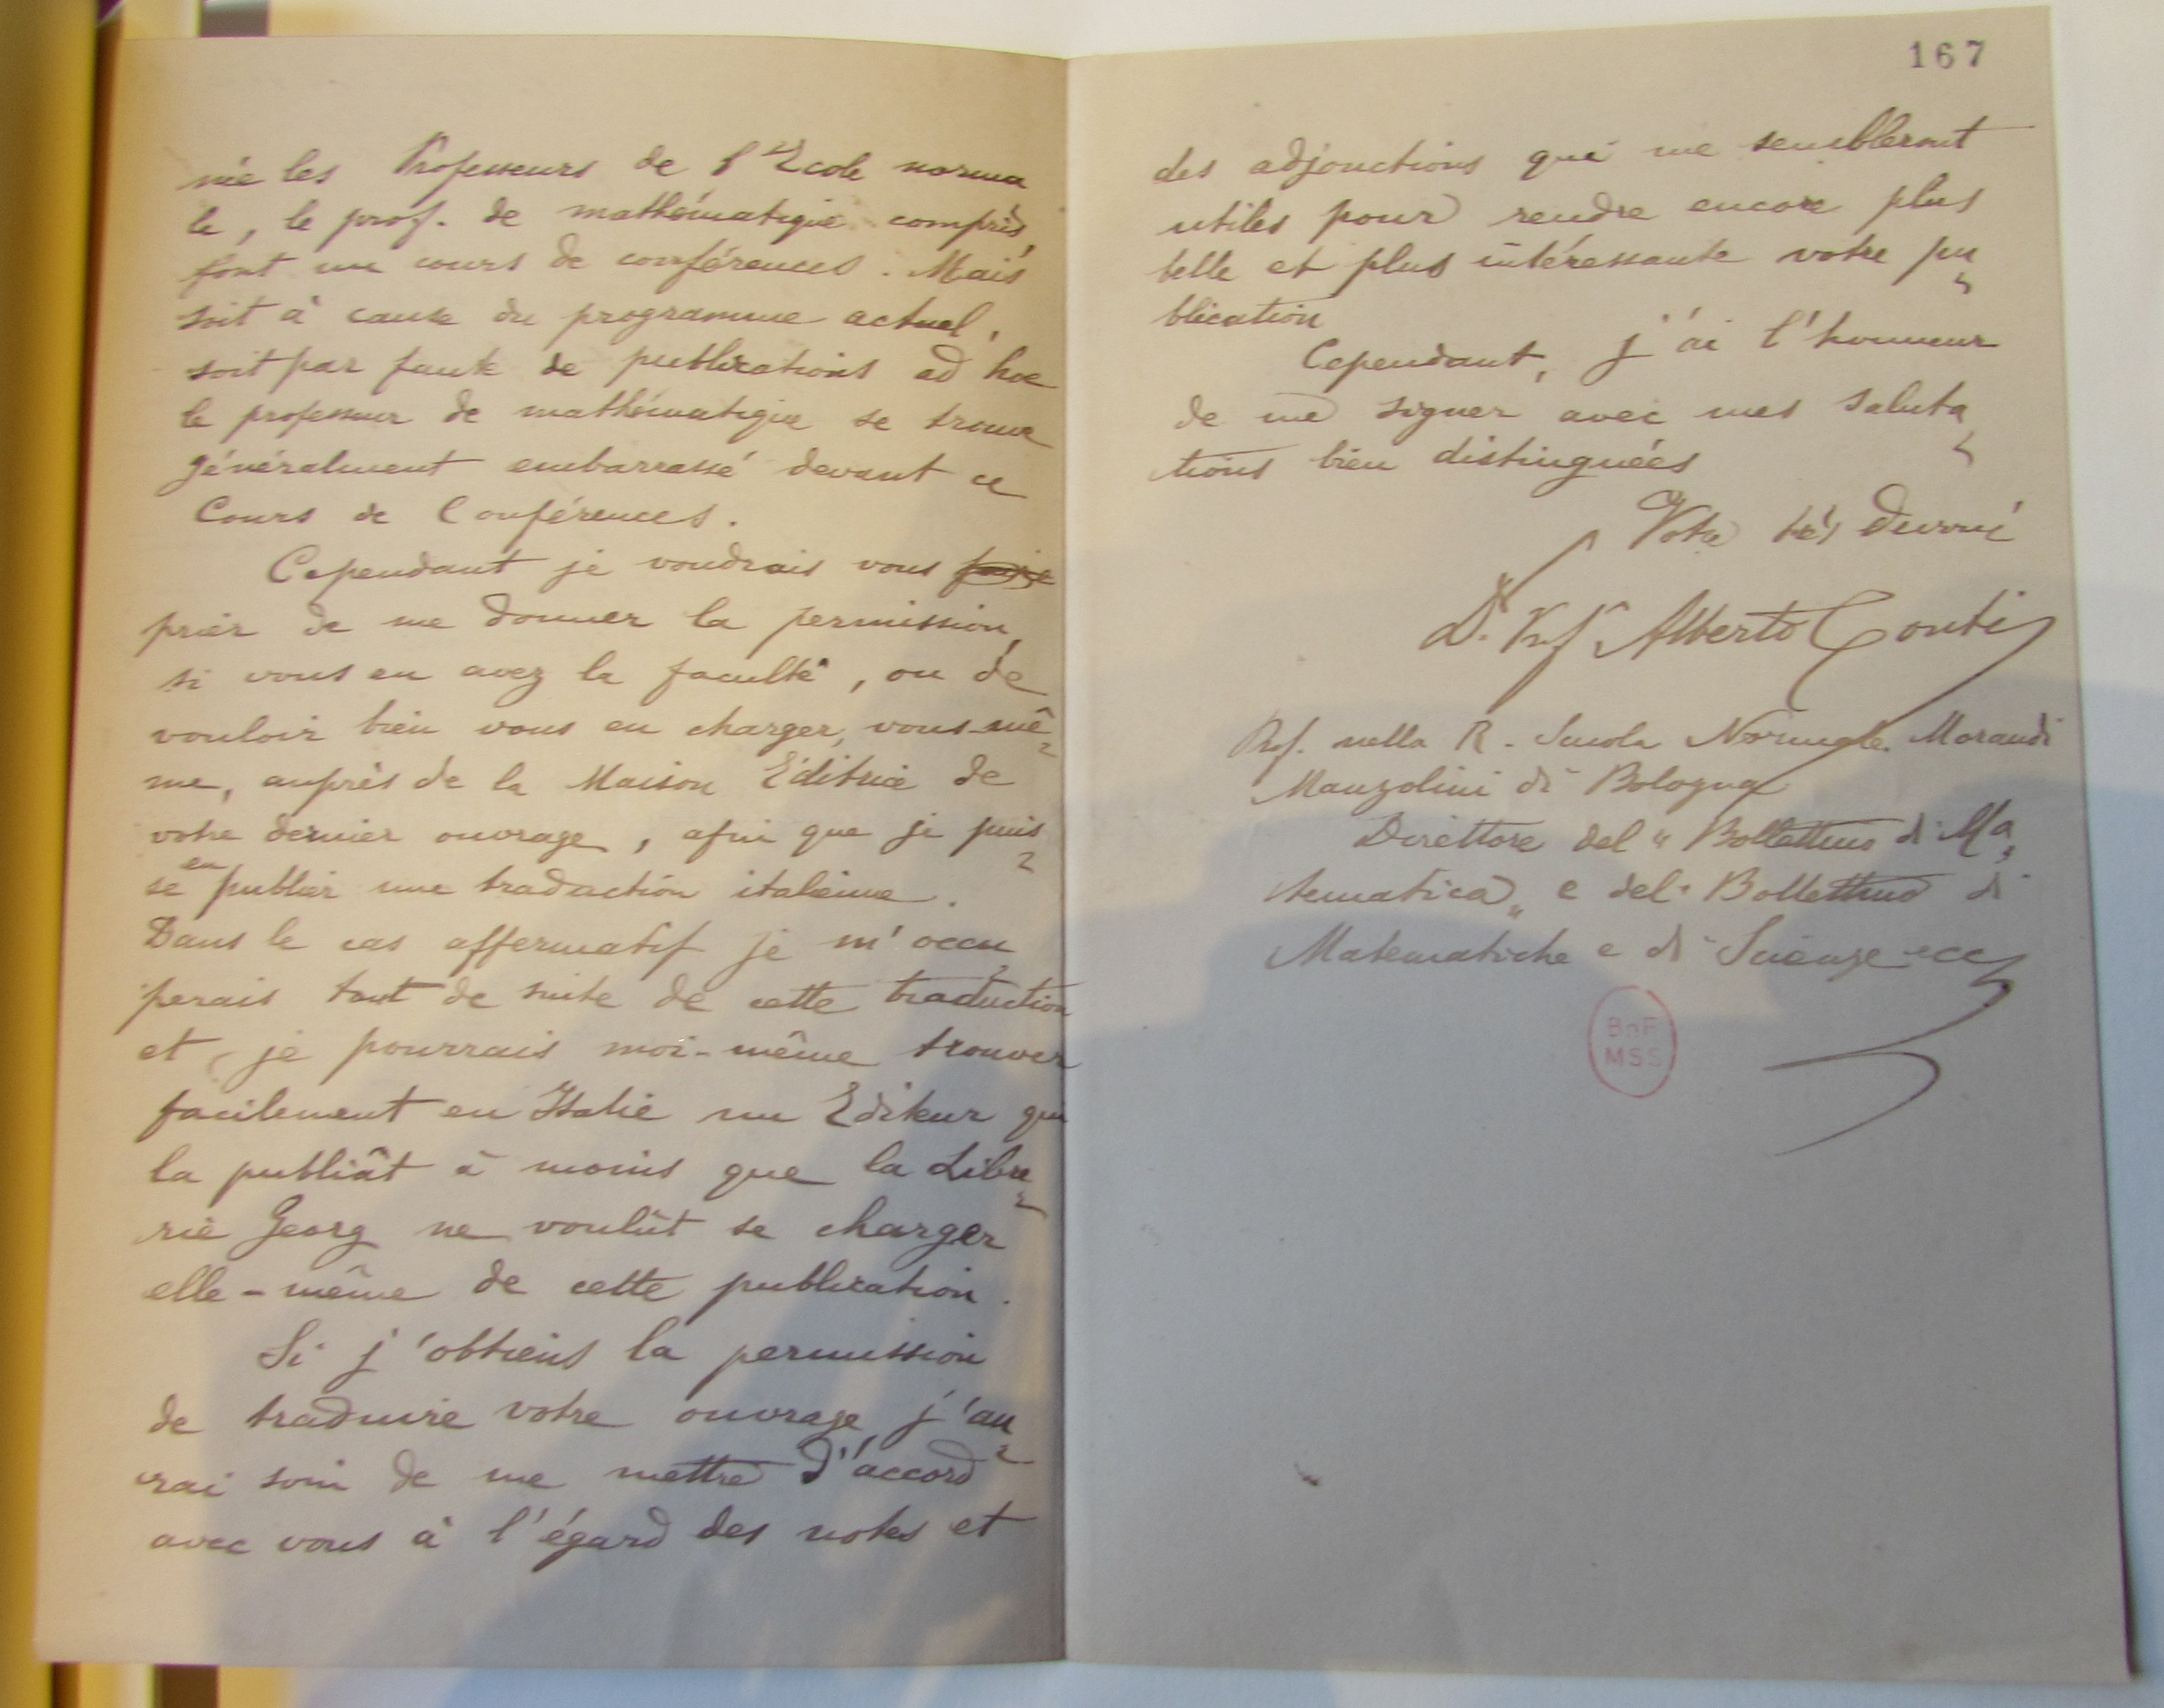 née les Professeurs de l'Ecole norma
le, le prof. de mathématique compris,
font un cours de conférences. Mais
soit à cause du programme actuel,
soit par faute de publications ad hoc
le professeur de mathématique se trouve
généralment embarrassé devant ce
Cours de Conférences.
Cependant je voudrais vous faire
prier de me donner la permission,
si vous en avez la faculté, ou de
vouloir bien vous en charger, vous-mê-
me, auprès de la Maison Editrice de
votre dernier ouvrage, afin que je puis-
se en publier une traduction italiénne.
Dans le cas affermatif je m'occu-
perais tout de suite de cette traduction
et je pourrais moi-même trouver
facilement en Italie un Editeur qui
la publiât à moins que la Libre-
rie Georg ne voulût se charger
elle-même de cette publication.
Si j'obtiens la permission
de traduire votre ouvrage, j'au-
rai soin de me mettre d'accord
avec vous à l'égard des notes et
167
des adjonctions qui me sembleront
utiles pour rendre encore plus
belle et plus intéressante votre pu-
blication
Cependant, j'ai l'honneur
de me signer avec mes saluta-
tions bien distinguées
Votre très devoué
Dr. Prof. Alberto Conti
Prof. nella R. Scuola Normale Morandi
Manzolini di Bologna
Direttore del "Bollettino di Ma-
tematica" e del "Bollettino di
Matematiche e di Scienze ecc
BnF
MSS